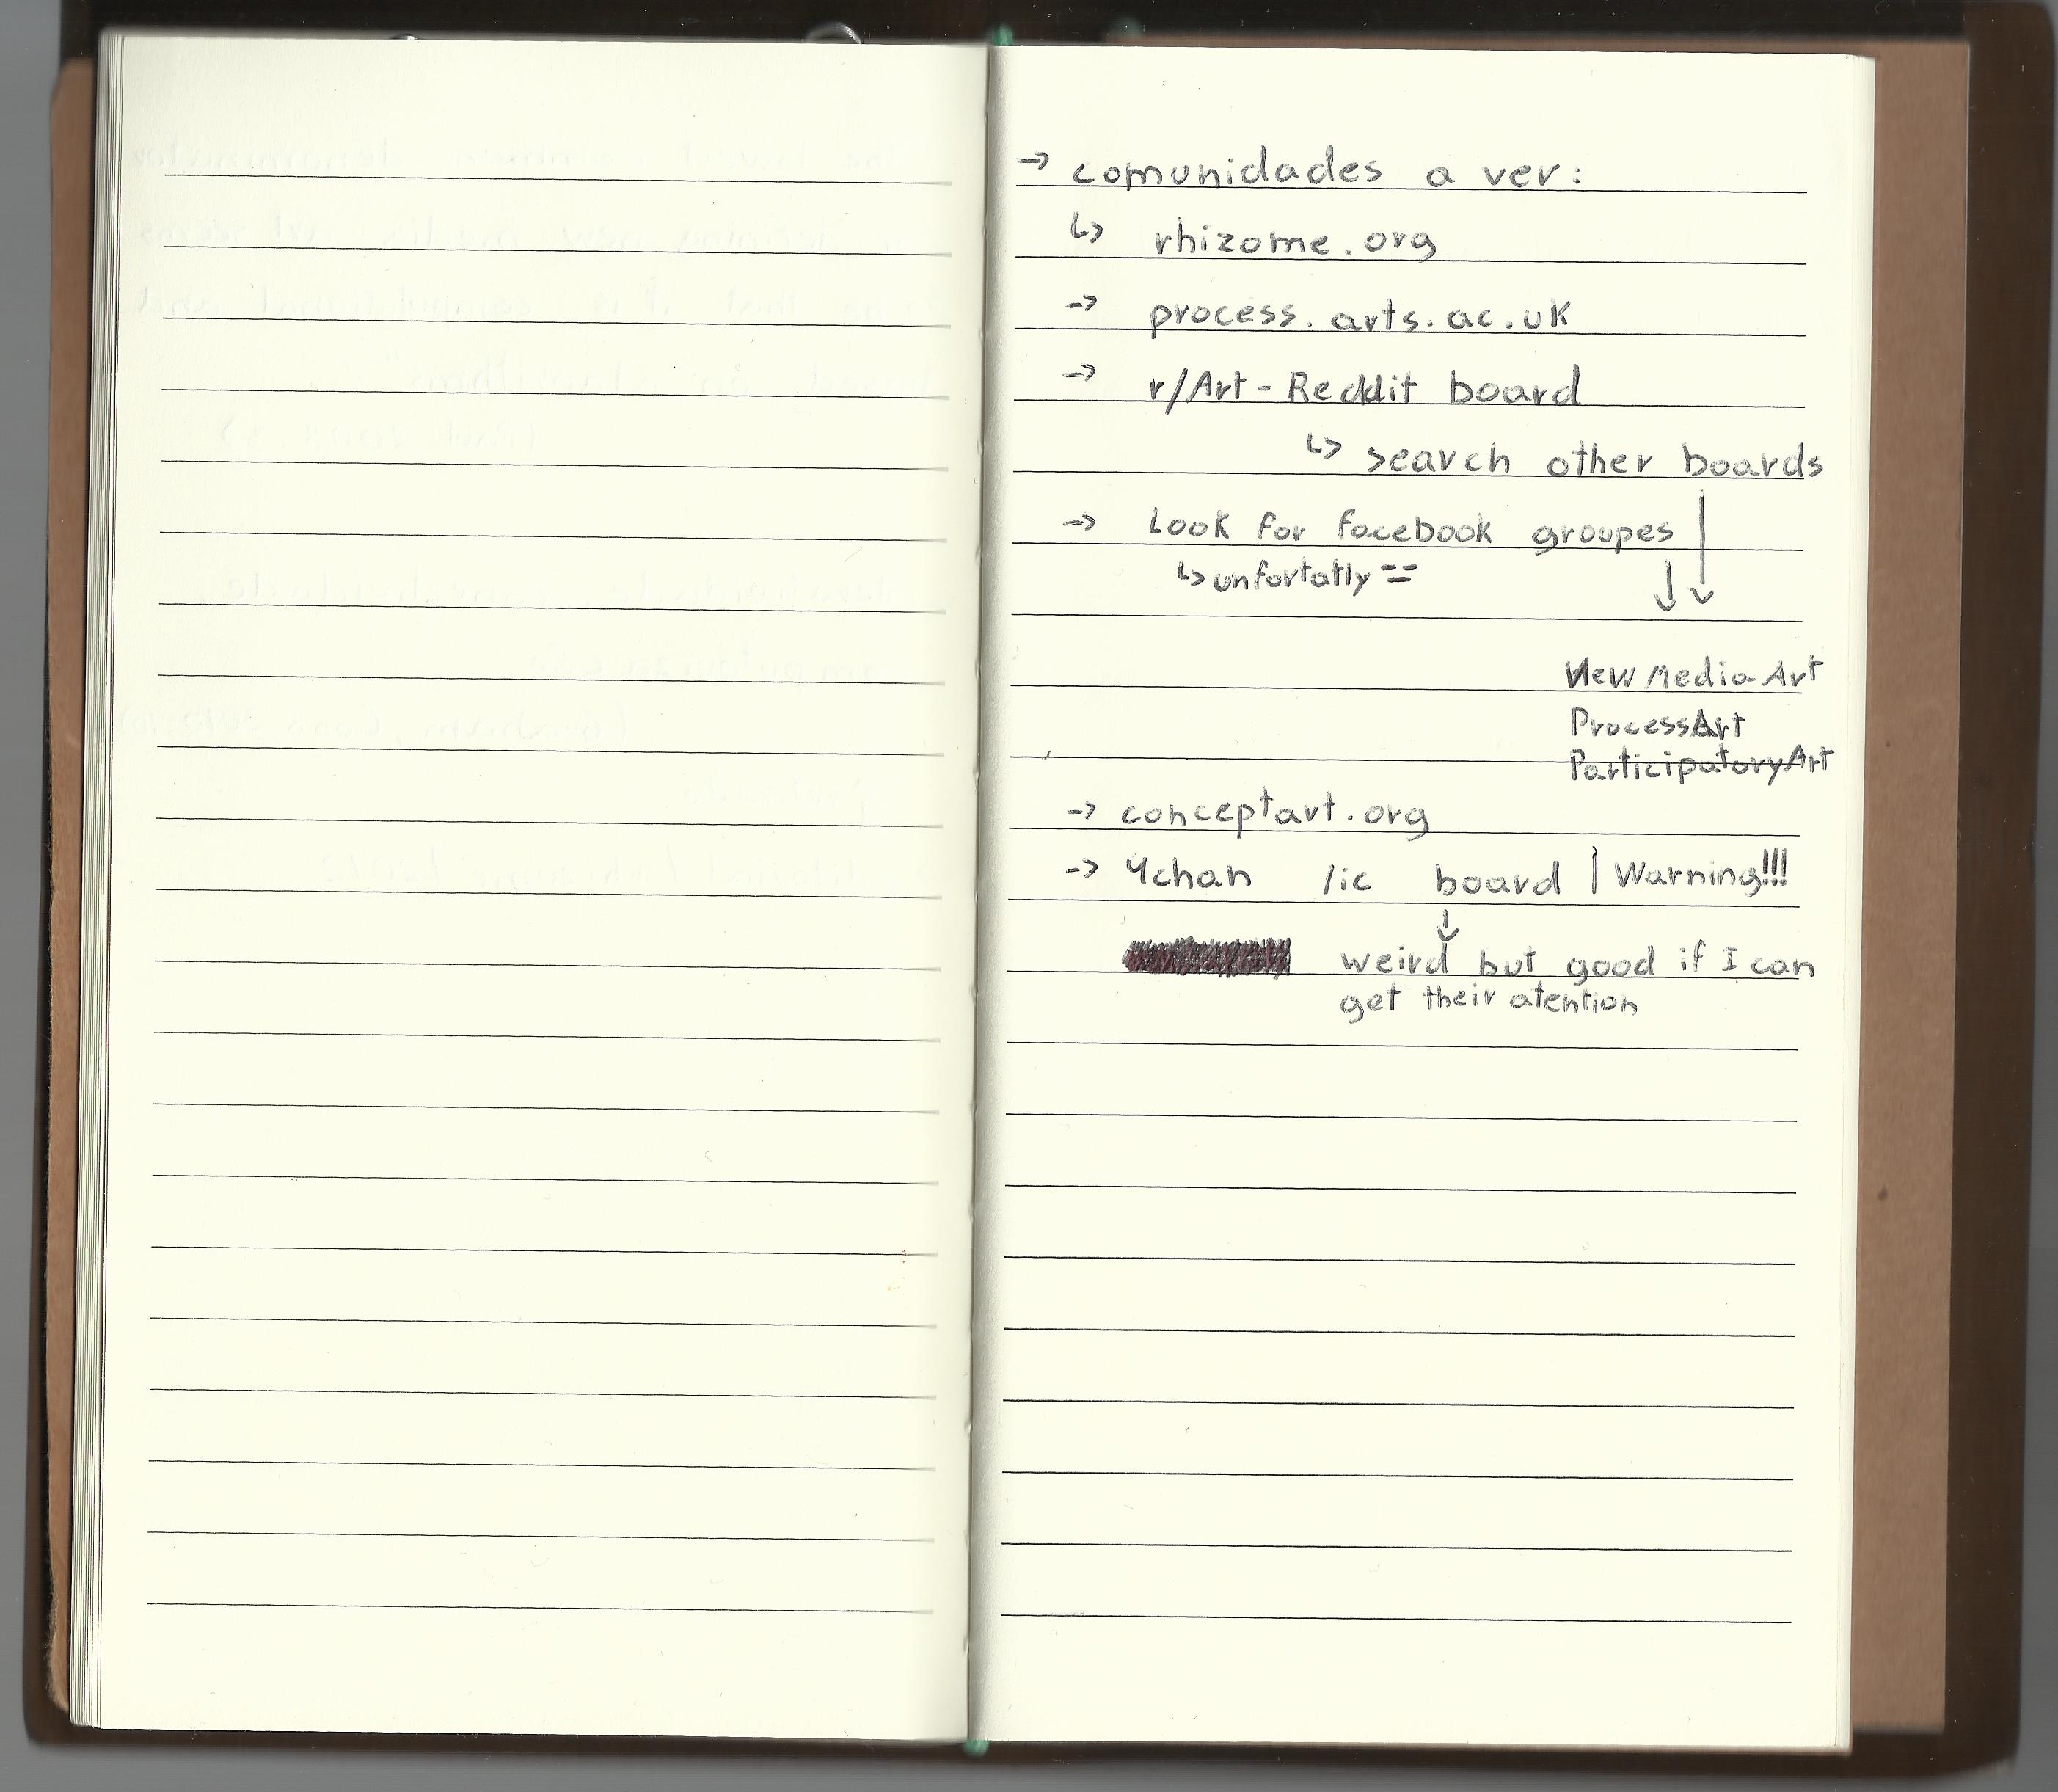 → comunidades a ver:
↳ rhizome.org
→ process.arts.ac.uk
→ r/Art - Reddit board
↳ search other boards
→ Look for facebook groupes
↳ unfortatly --
New Media Art
ProcessArt
ParticipatoryArt
→ conceptart.org
→ 4chan /ic board | Warning!!!
weird but good if I can
get their atention